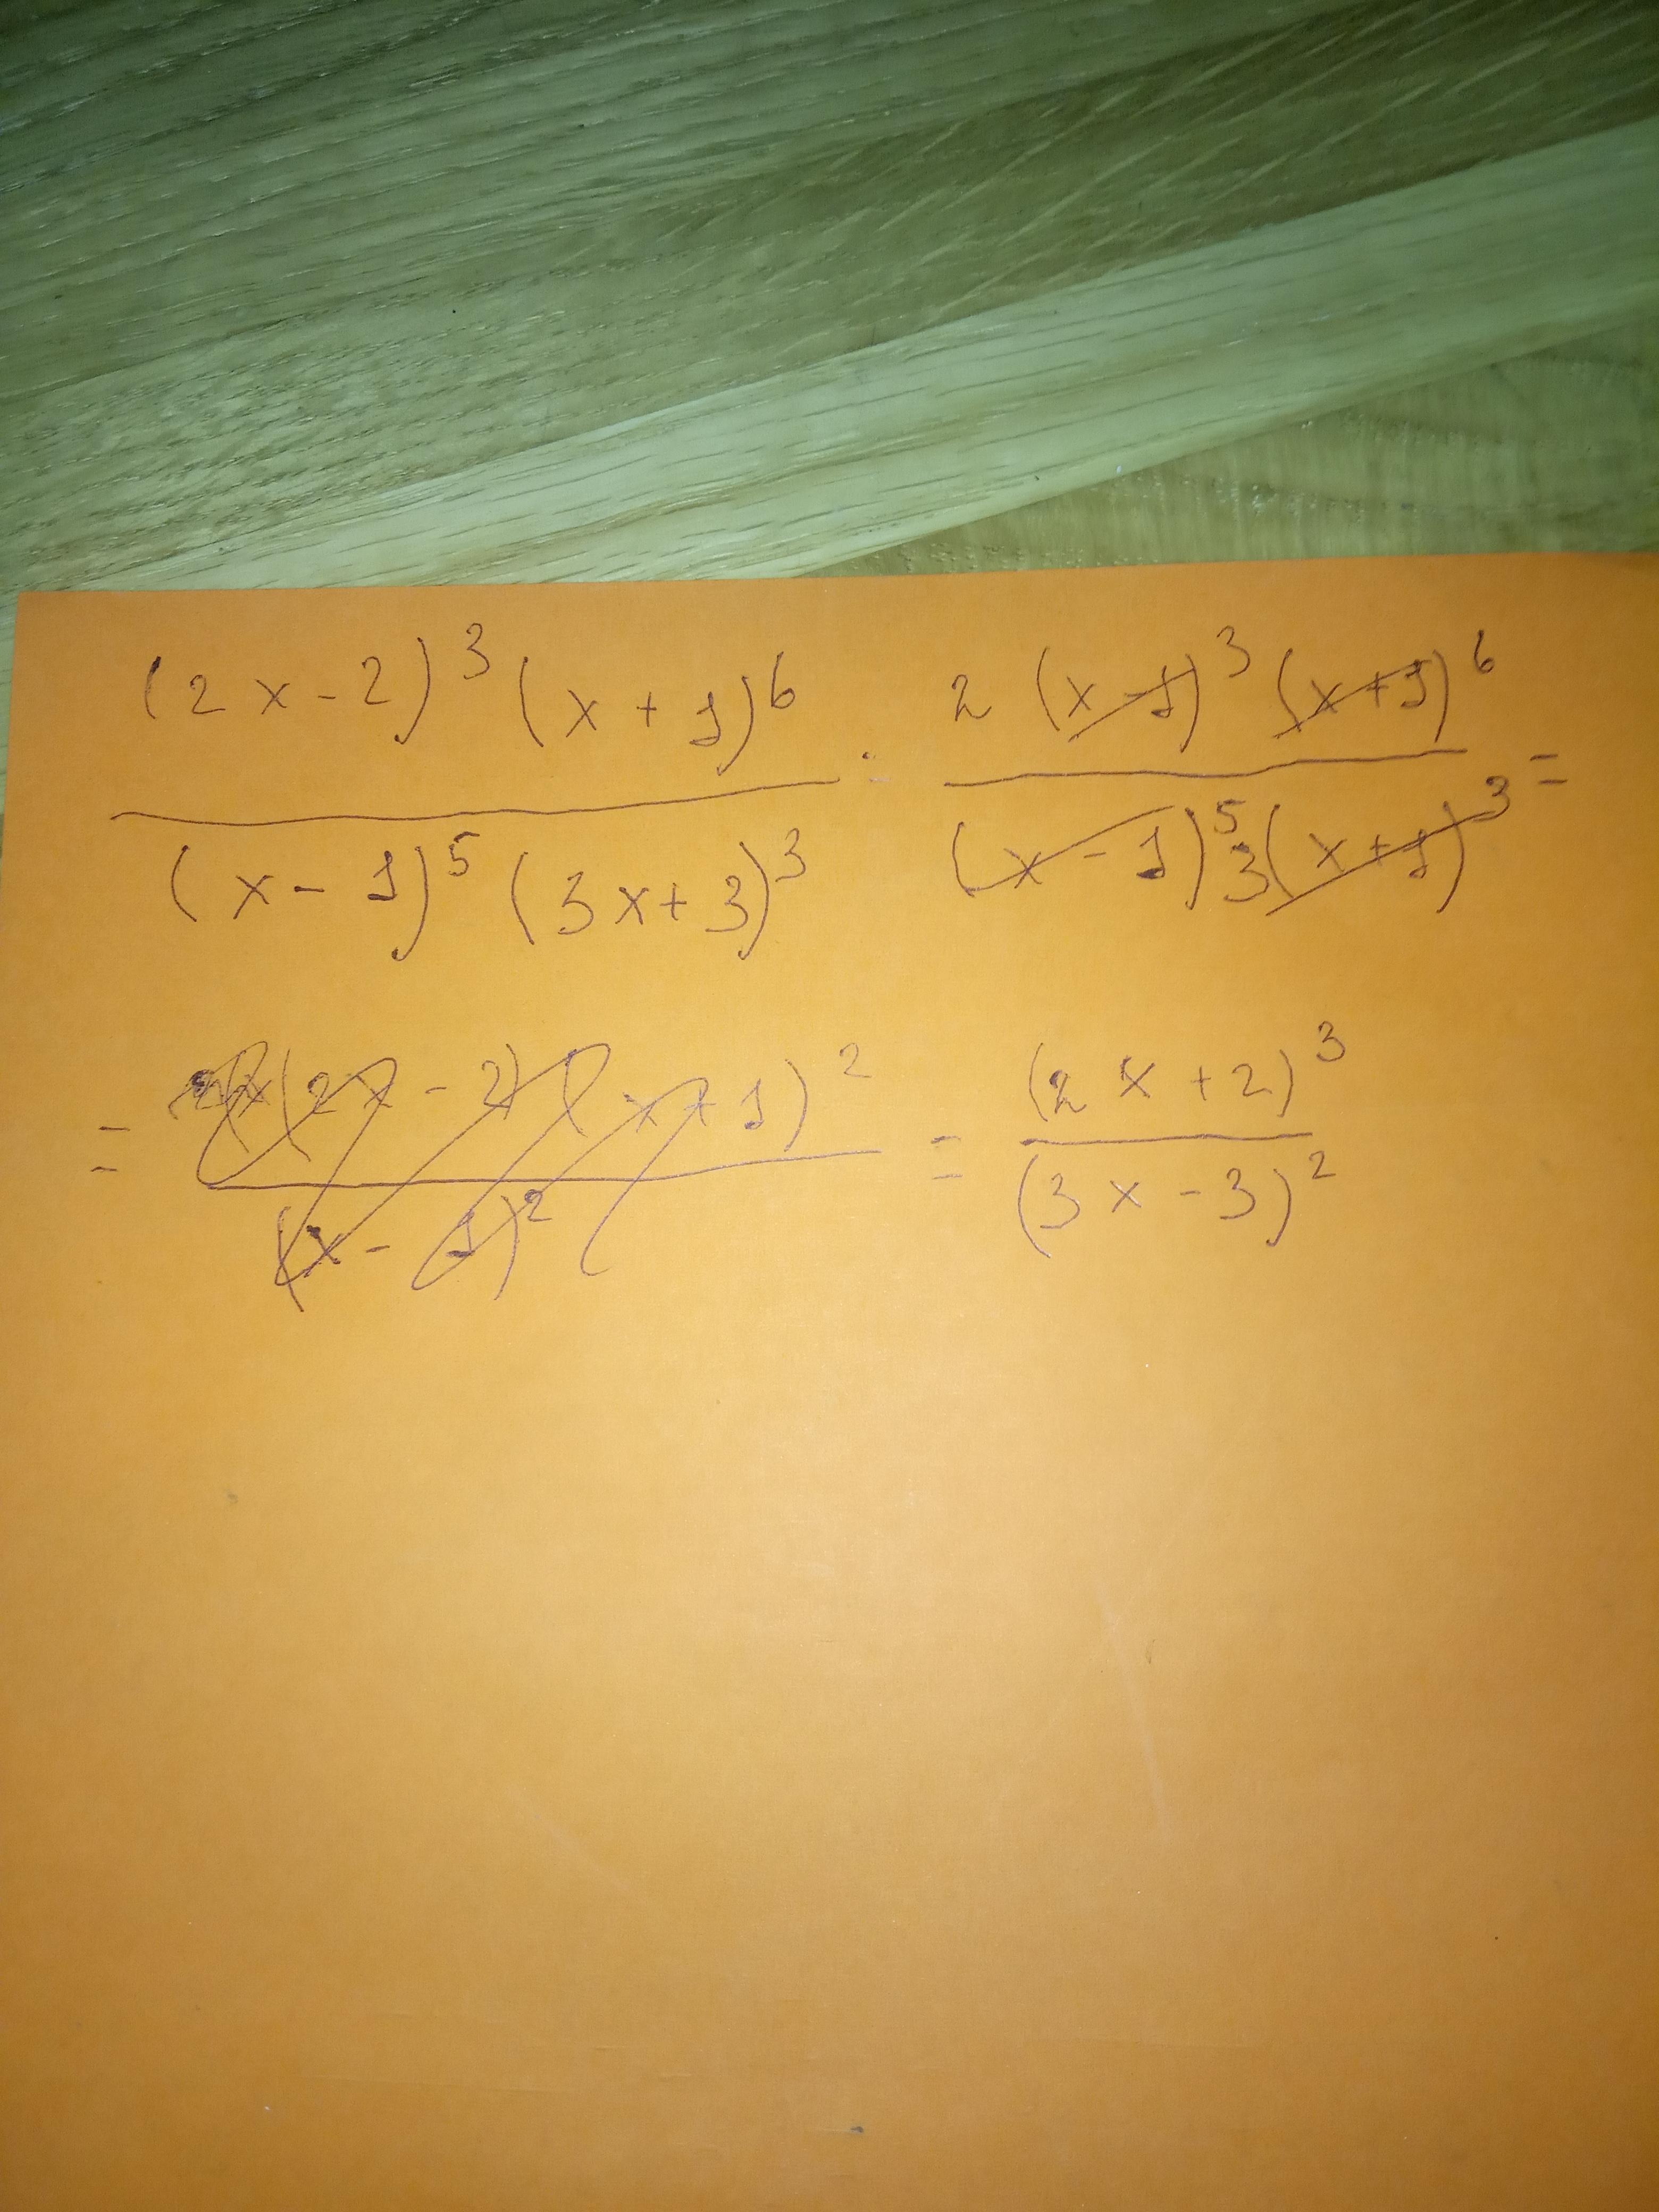 (2x-2)³(x+1)⁶ / (x-1)⁵(3x+3)³ = 2(x-1)³(x+1)⁶ / (x-1)⁵3(x+1)³ =
= (2x-2)(x+1)² / (x-1)² = (2x+2)³ / (3x-3)²